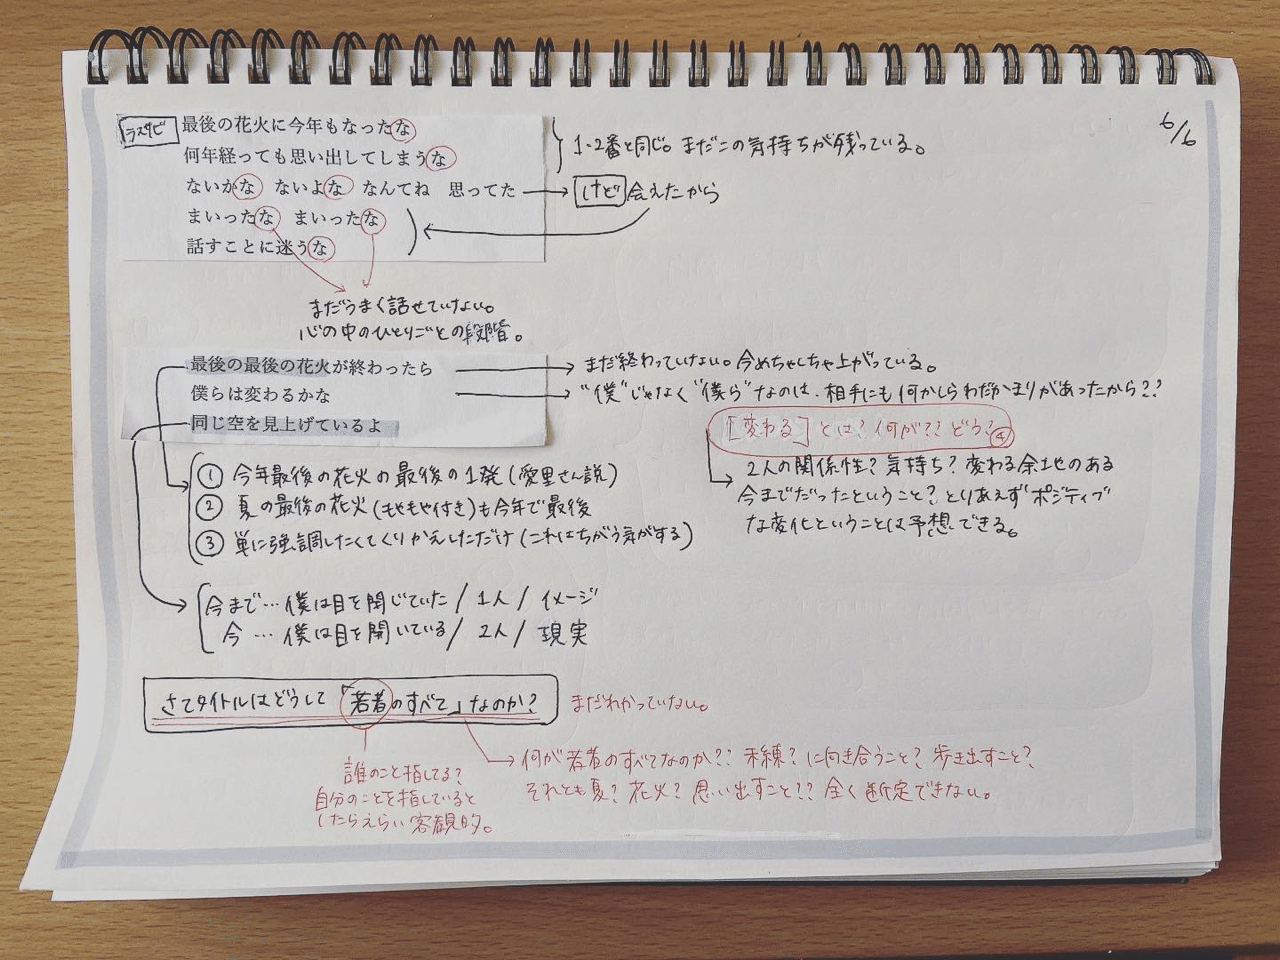 6/6
ラスサビ
最後の花火に今年もなったな
何年経っても思い出してしまうな
ないかな ないよな なんてね 思ってた
まいったな まいったな
話すことに迷うな
1・2番と同じ。まだこの気持ちが残っている。
けど 会えたから
まだうまく話せていない。
心の中のひとりごとの段階。
最後の最後の花火が終わったら
僕らは変わるかな
同じ空を見上げているよ
まだ終わっていない。今めちゃくちゃ上がっている。
"僕"じゃなく"僕ら"なのは、相手にも何かしらわだかまりがあったから??
[変わる]とは?何が??どう?④
2人の関係性?気持ち?変わる余地のある
今までだったということ?とりあえずポジティブ
な変化ということは予想できる。
① 今年最後の花火の最後の1発(愛里さん説)
② 夏の最後の花火(もやもや付き)も今年で最後
③ 単に強調したくてくりかえしただけ(これはちがう気がする)
今まで…僕は目を閉じていた/1人/イメージ
今 …僕は目を開いている/2人/現実
さてタイトルはどうして「若者のすべて」なのか?
まだわかっていない。
誰のこと指してる?
自分のことを指していると
したらえらい客観的。
何が若者のすべてなのか??未練?に向き合うこと?歩き出すこと?
それとも夏?花火?思い出すこと??全く断定できない。